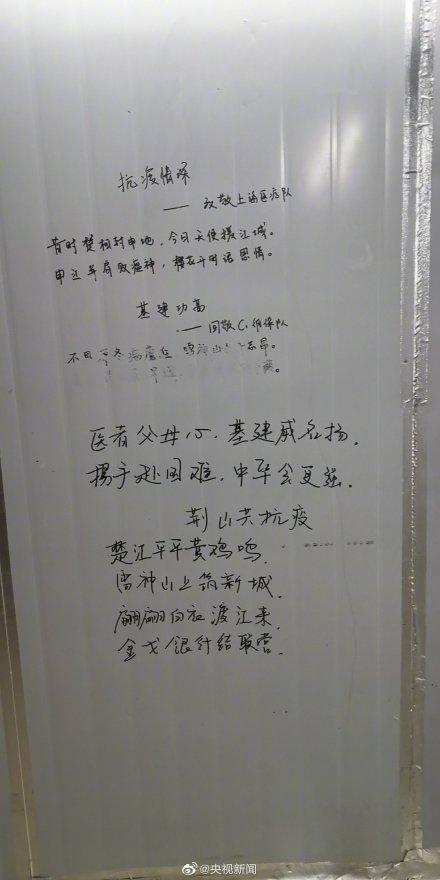 抗疫情深
—— 致敬上海医疗队
昔时楚相封申地，今日天使援江城。
申江并肩驱瘟神，樱花开时话恩情。
基建功高
—— 回敬C1维保队
不因
医者父母心，基建威名扬，
携手赴国难，中华会更强．
荆山共抗疫
楚江平平黄鸡鸣，
雷神山上筑新城．
翩翩白衣渡江来，
金戈银针结联营．
@央视新闻